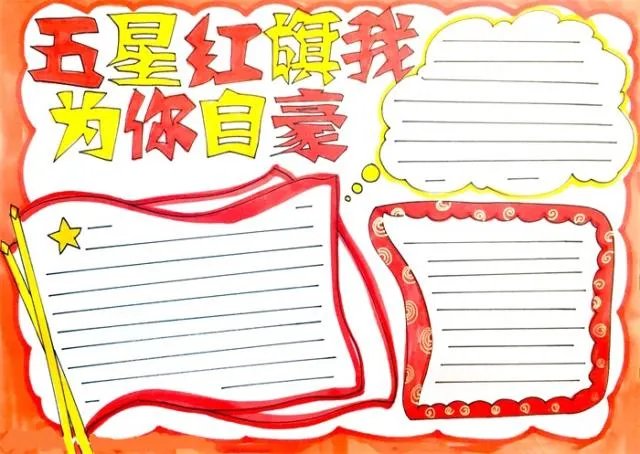 五星红旗我
为你自豪